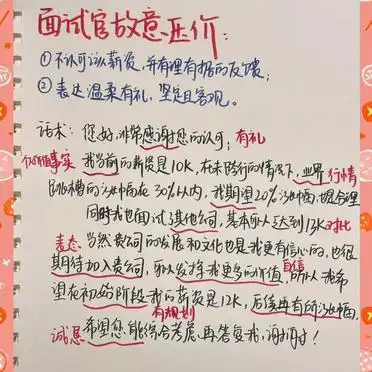 面试官故意压价:
①不认可该薪资,并有理有据的反馈;
②表达温柔有礼、坚定且客观。
话术: 您好,非常感谢您的认可; 有礼
事实 我当前的薪资是10K,在未跨行的情况下,业界 行情
跳槽的涨幅在30%以内,我期望20%涨幅,是合理
同时我也面试其他公司,基本可以达到13K 对比
表态 当然贵公司的发展和文化也是我更有信心的,也很
期待加入贵公司,可以发挥我更多的价值 自信 所以我希
望在初始阶段我的薪资是12K,后续再有所涨幅,
有规划
诚恳 希望您能综合考虑,再答复我,谢谢!